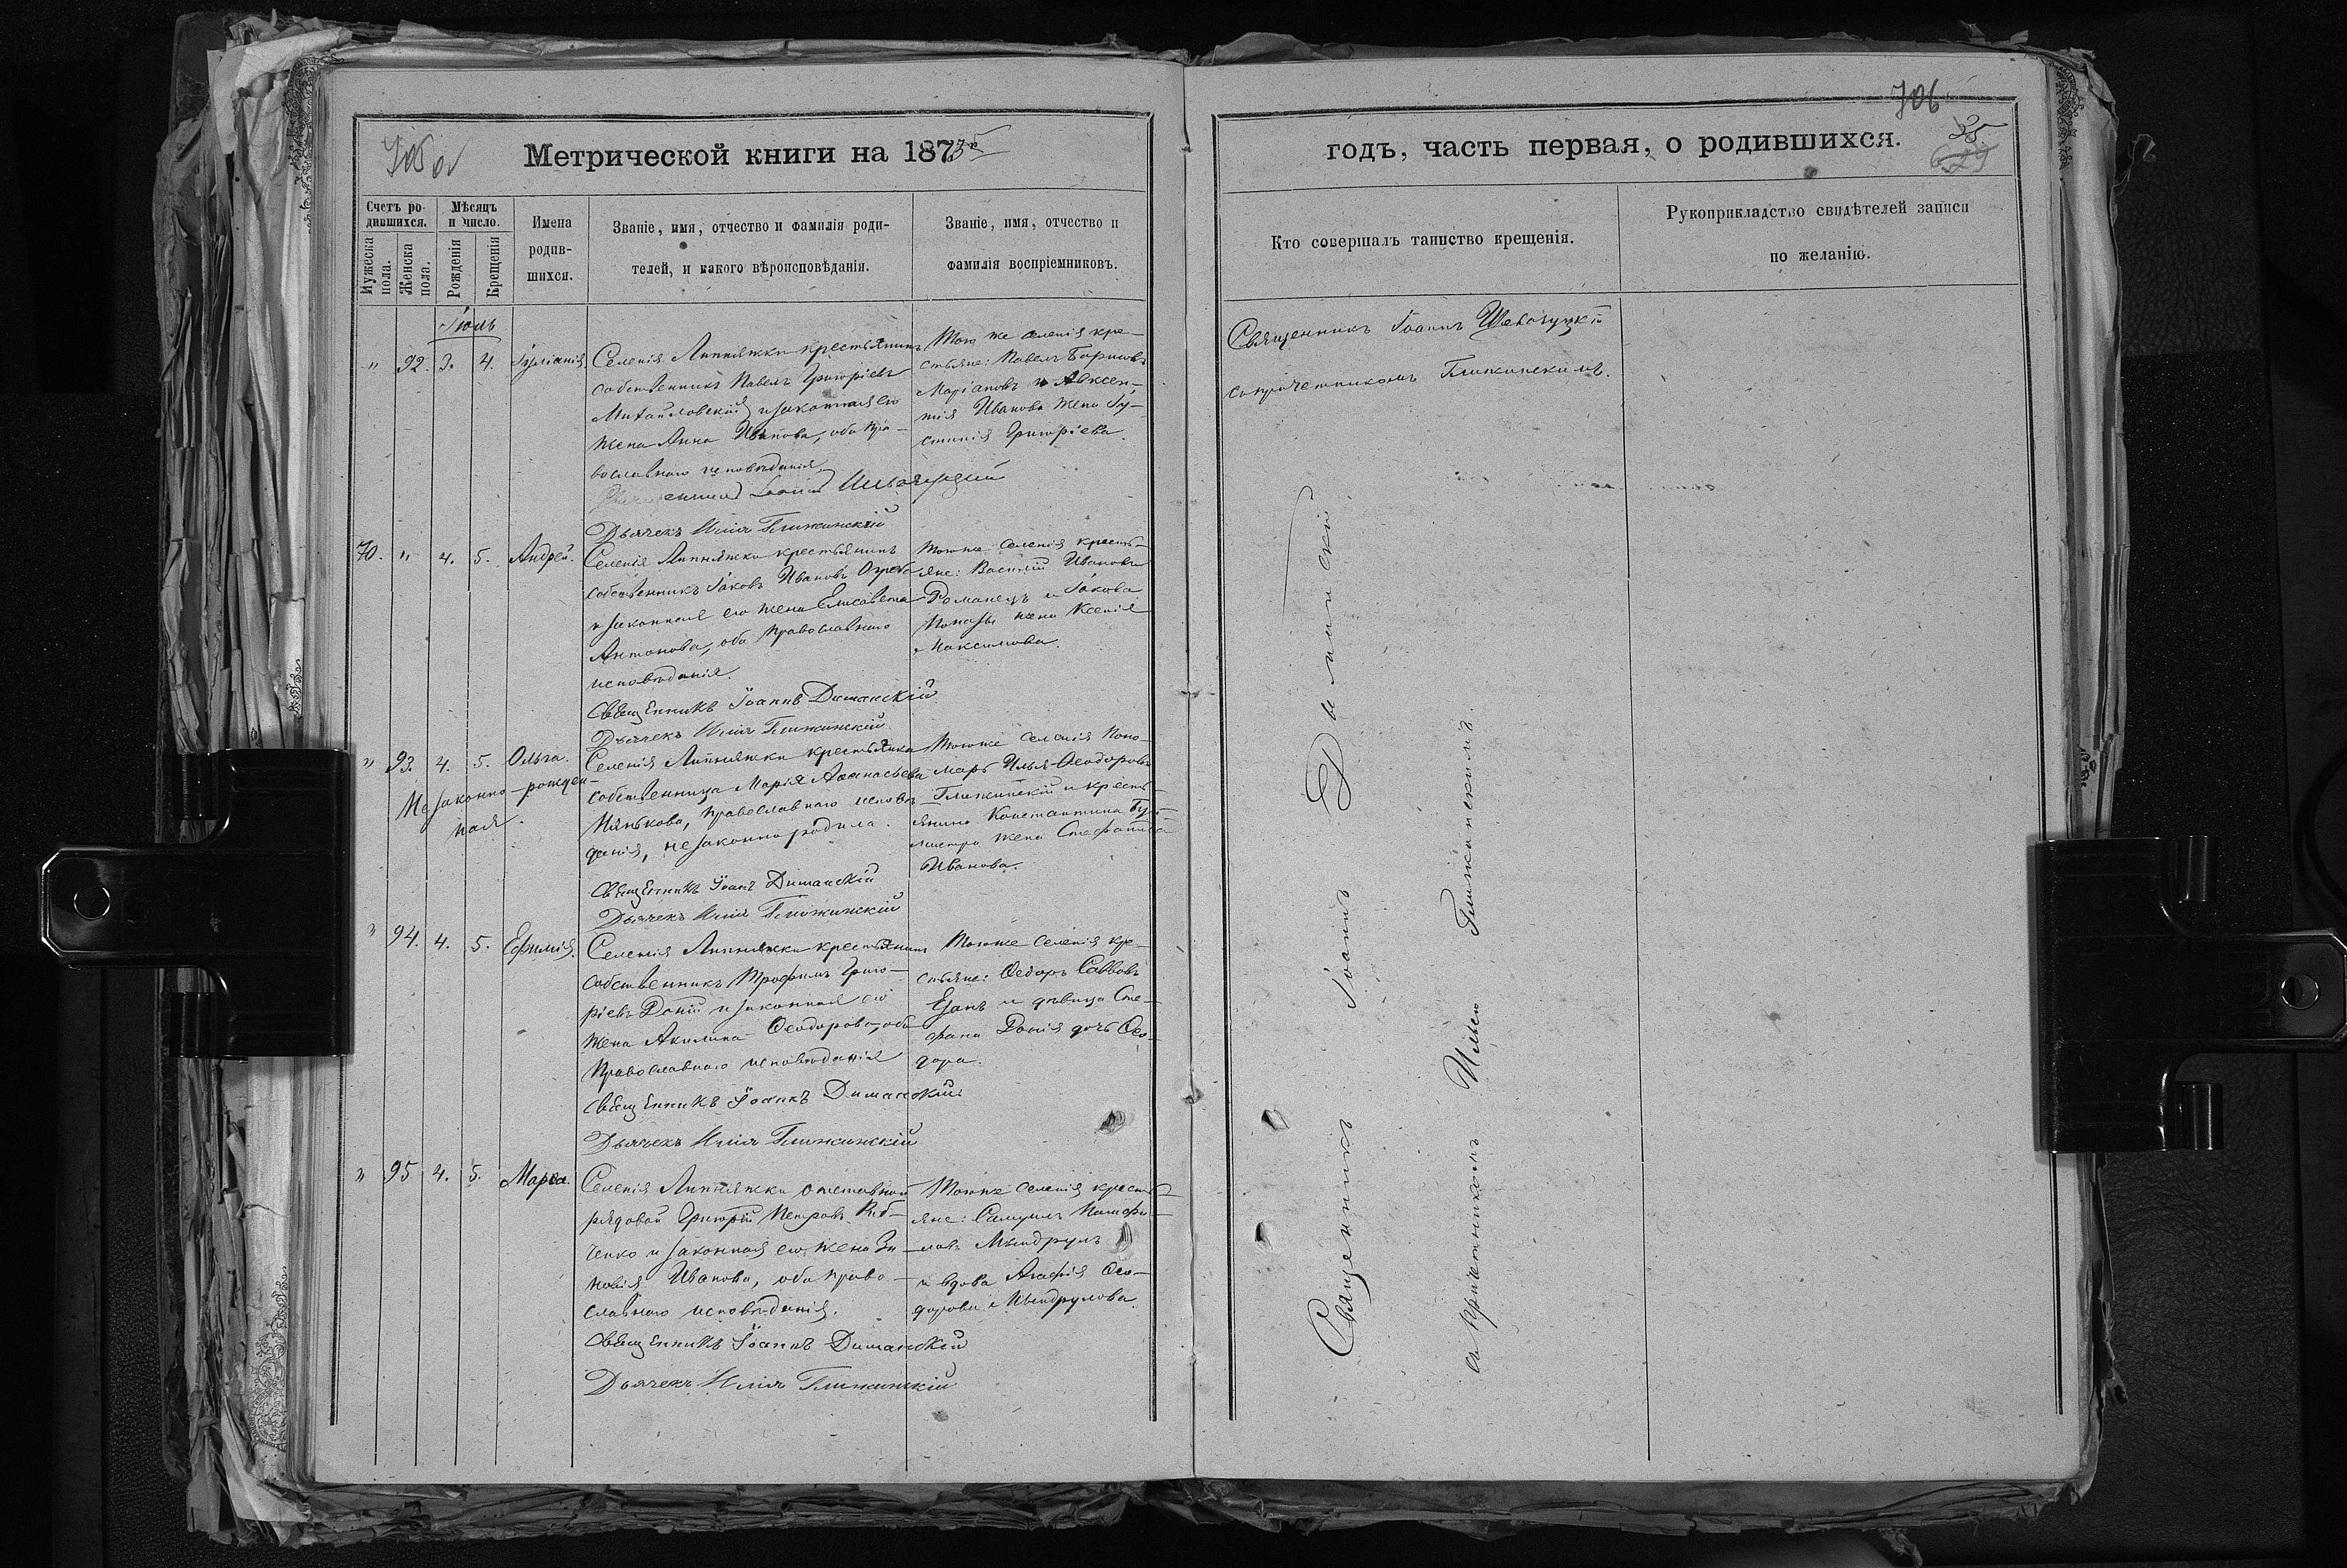 Метрической книги на 1875
Счетъ ро-
дившихся.
Мужеска
пола.
Женска
пола.
Мѣсяцъ
и число.
Рожденія
Крещенія
Имена
родив-
шихся.
Званіе, имя, отчество и фамилія роди-
телей, и какого вѣроисповѣданія.
Званіе, имя, отчество и
фамилія воспріемниковъ.
Іюль
" 92. 3. 4. Іуліанія
Селенія Липняжки крестьянинъ
собственникъ Павелъ Григоріевъ
Михайловскій и законная его
жена Анна Иванова, оба пра-
вославнаго исповѣданія.
Священникъ Іоаннъ
Дьячекъ Илія Глижинскій
Того же селенія кре-
стьяне: Павелъ
Маріановъ и Авксен-
тія Иванова жена Іу-
стинія Григоріева.
70. " 4. 5. Андрей.
Селенія Липняжки крестьянинъ
собственникъ Іаковъ Ивановъ
и законная его жена Елисавета
Антонова, оба православнаго
исповѣданія.
Священникъ Іоаннъ Диманскій
Дьячекъ Илія Глижинскій
Тогоже селенія кресть-
яне: Василій Ивановъ
Романецъ и Іакова
жена Ксенія
Максимова.
" 93. 4. 5. Ольга.
Незаконно-рожден-
ная.
Селенія Липняжки крестьянка
собственница Марія Аѳанасьева
Нянькова, православнаго исповѣ-
данія, незаконно родила.
Священникъ Іоаннъ Диманскій
Дьячекъ Илія Глижинскій
Тогоже селенія поно-
марь Илья Ѳеодоровъ
Глижинскій и кресть-
янина Константина
жена Стефанида
Иванова.
" 94. 4. 5. Ефимія.
Селенія Липняжки крестьянинъ
собственникъ Трофимъ Григо-
ріевъ Доній и законная его
жена Акилина Ѳеодорова, оба
православнаго исповѣданія
Священникъ Іоаннъ Диманскій
Дьячекъ Илія Глижинскій
Тогоже селенія кре-
стьяне: Ѳедоръ Саввовъ
и дѣвица Сте-
фана Донія дочь Ѳео-
дора.
" 95 4. 5. Марѳа.
Селенія Липняжки отставной
рядовой Григорій Петровъ
и законная его жена Зи-
новія Иванова, оба право-
славнаго исповѣданія.
Священникъ Іоаннъ Диманскій
Дьячекъ Илія Глижинскій
Тогоже селенія кресть-
яне: Самуилъ
Мындрулъ
и вдова Агафія Ѳео-
дорова Мындрулова.
706
годъ, часть первая, о родившихся.
35
Кто совершалъ таинство крещенія.
Рукоприкладство свидѣтелей записи
по желанію.
Священникъ Іоаннъ
съ причетникомъ Глижинскимъ.
Священникъ Іоаннъ Диманскій
съ причетникомъ Ильею Глижинскимъ.